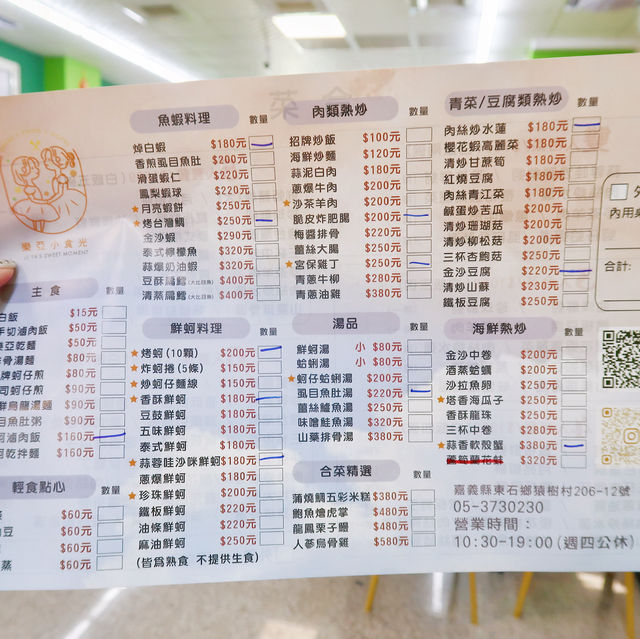 樂亞小食光
LE YA'S SWEET MOMENT
主食 數量
白飯 $15元
手切滷肉飯 $50元
樂亞乾麵 $50元
$80元
$80元
$80元
$90元
$90元
$160元
$160元
輕食點心 數量
$60元
$60元
$60元
$60元
魚蝦料理 數量
焯白蝦 $180元
香煎虱目魚肚 $200元
滑蛋蝦仁 $220元
鳳梨蝦球 $220元
★月亮蝦餅 $250元
★烤台灣鯛 $250元
金沙蝦 $290元
泰式檸檬魚 $320元
蒜爆奶油蝦 $320元
豆酥扁鱈(大比目魚) $400元
清蒸扁鱈(大比目魚) $400元
鮮蚵料理 數量
★烤蚵(10顆) $200元
★炸蚵捲(5條) $150元
★炒蚵仔麵線 $150元
★香酥鮮蚵 $180元
豆豉鮮蚵 $180元
五味鮮蚵 $180元
泰式鮮蚵 $180元
★蒜蓉哇沙咪鮮蚵 $180元
蔥爆鮮蚵 $180元
★珍珠鮮蚵 $200元
鐵板鮮蚵 $220元
油條鮮蚵 $220元
麻油鮮蚵 $250元
(皆為熟食 不提供生食)
肉類熱炒 數量
招牌炒飯 $100元
海鮮炒麵 $120元
蒜泥白肉 $180元
蔥爆牛肉 $200元
★沙茶羊肉 $200元
脆皮炸肥腸 $200元
梅醬排骨 $220元
蘿絲大腸 $250元
★宮保雞丁 $250元
青蔥牛柳 $280元
青蔥油雞 $380元
湯品 數量
鮮蚵湯 小 $80元
蛤蜊湯 小 $80元
★蚵仔蛤蜊湯 $200元
虱目魚肚湯 $220元
薑絲鱸魚湯 $250元
味噌鮭魚湯 $320元
山藥排骨湯 $380元
合菜精選 數量
蒲燒鯛五彩米糕 $380元
鮑魚燴虎掌 $480元
龍鳳栗子鰻 $480元
人蔘烏骨雞 $580元
青菜/豆腐類熱炒 數量
肉絲炒水蓮 $180元
櫻花蝦高麗菜 $180元
清炒甘蔗筍 $180元
紅燒豆腐 $180元
肉絲青江菜 $180元
鹹蛋炒苦瓜 $200元
清炒珊瑚菇 $200元
清炒柳松菇 $200元
三杯杏鮑菇 $250元
金沙豆腐 $220元
清炒山蘇 $230元
鐵板豆腐 $250元
海鮮熱炒 數量
金沙中卷 $200元
酒蒸蛤蠣 $200元
沙拉魚卵 $250元
★塔香海瓜子 $250元
香酥龍珠 $250元
三杯中卷 $280元
★蒜香軟殼蟹 $380元
$320元
嘉義縣東石鄉猿樹村206-12號
05-3730230
營業時間：
10:30-19:00(週四公休)
內用桌
合計: